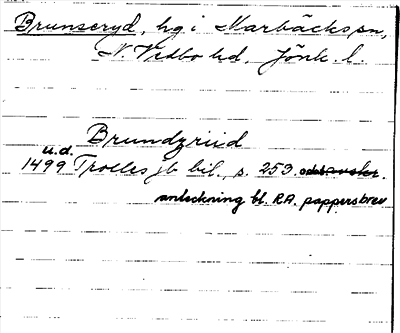 Brunseryd, hg i Marbäcks sn,
N. Vedbo hd, Jönk. l.
Brundzriid
u.d.
1499 Trolles jb bil., s. 253.
anteckning bl. RA. pappersbrev